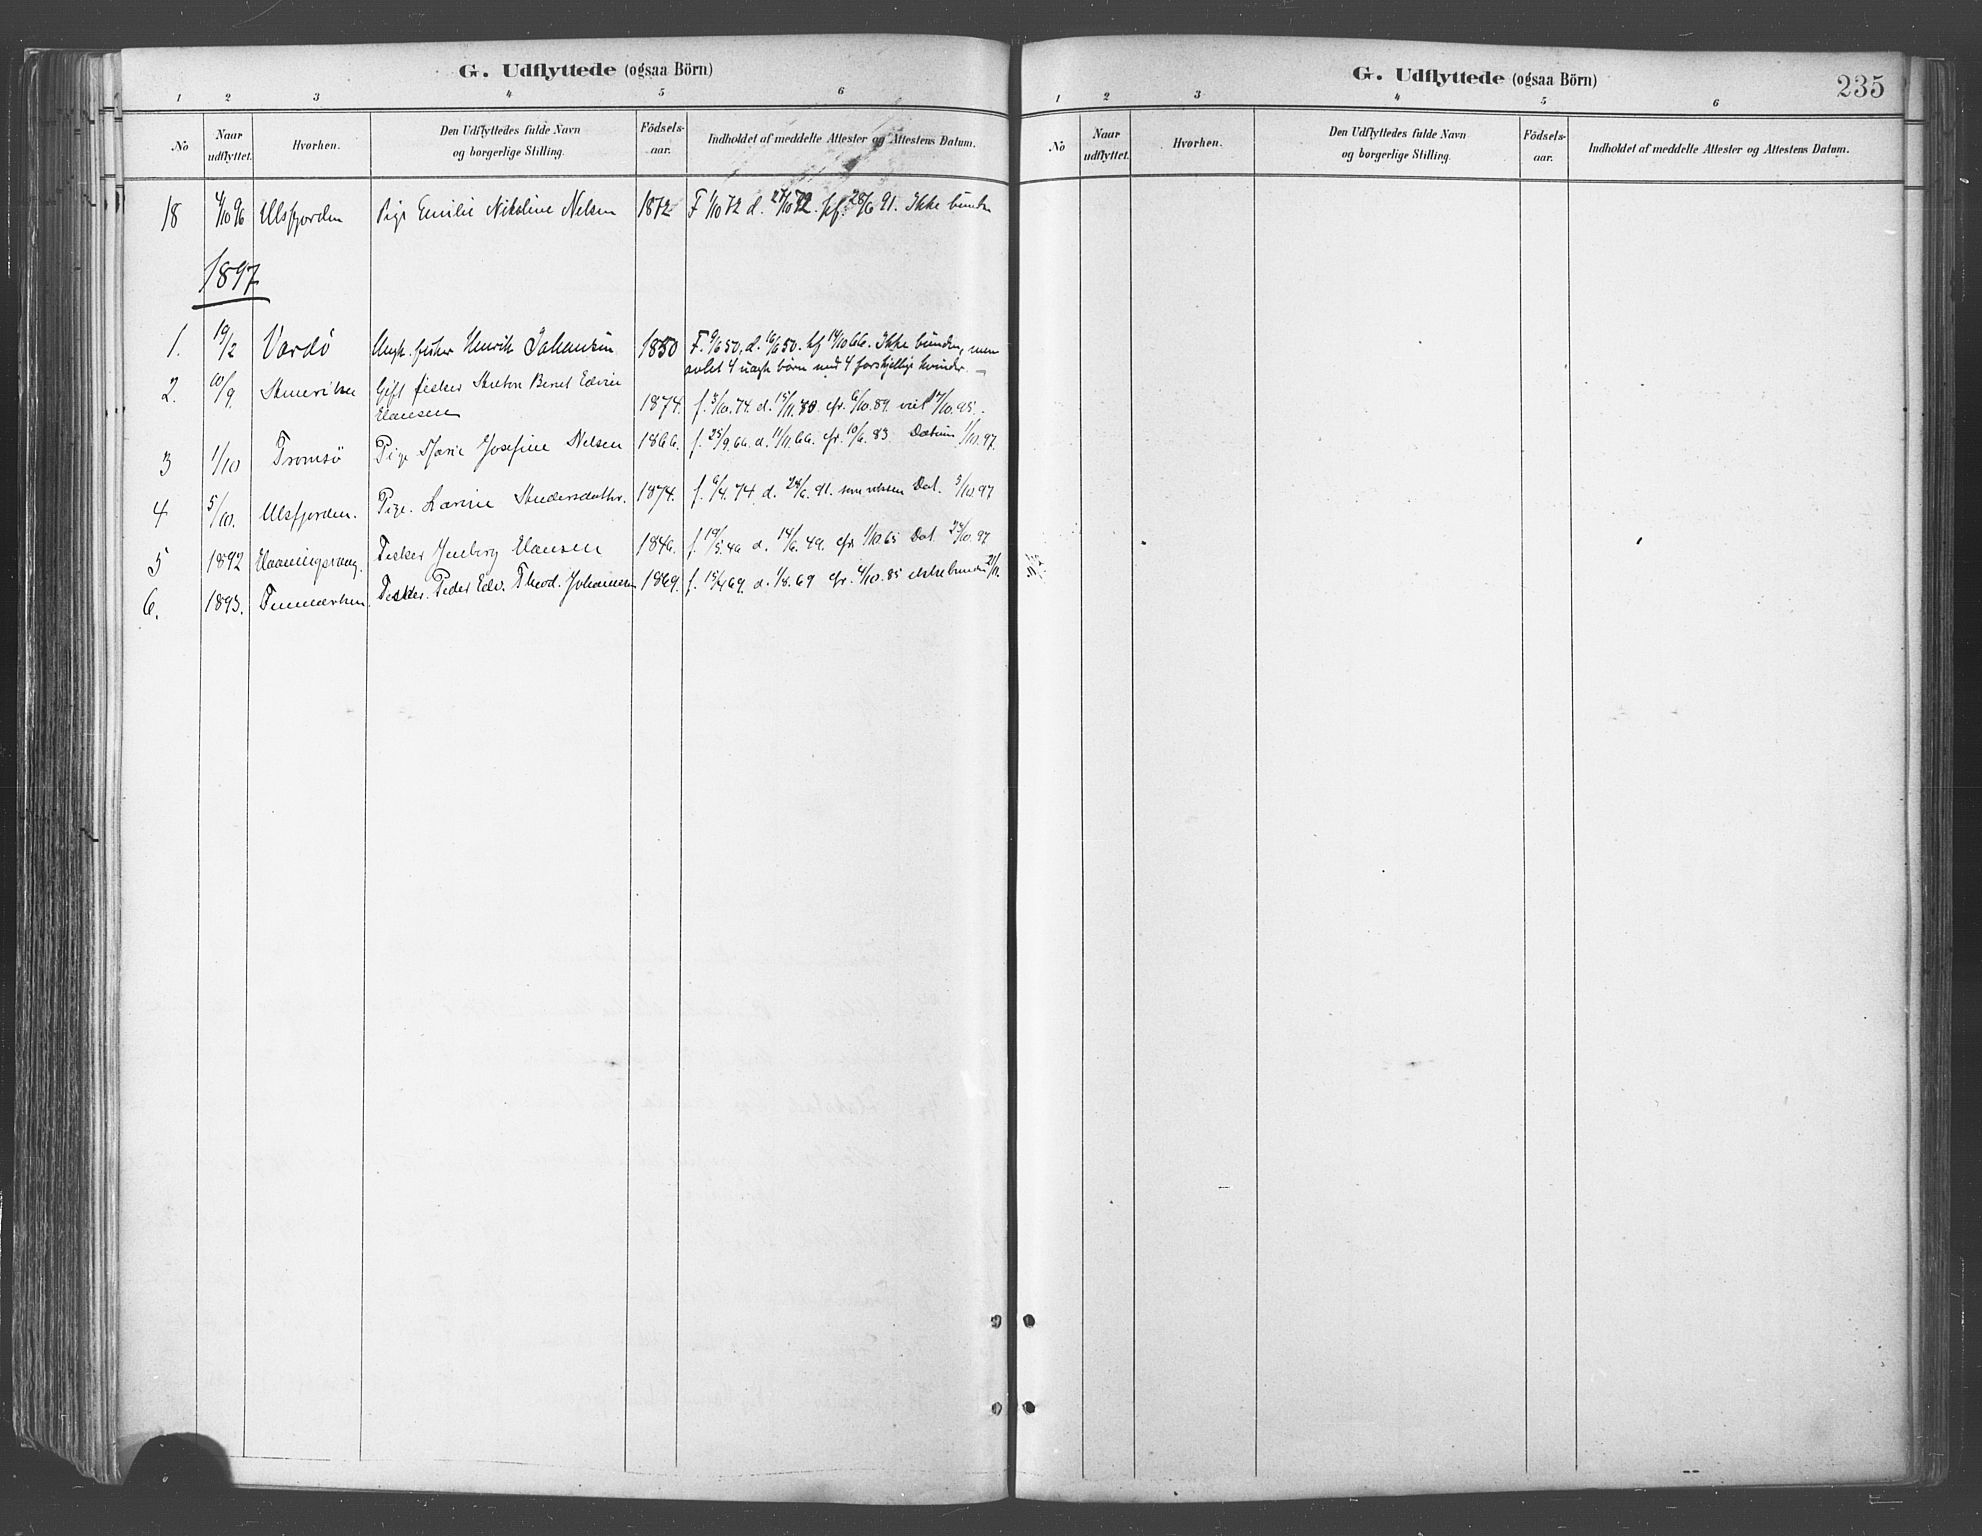 G. Udflyttede (ogsaa Börn)
1 2 3 4 5 6
No Naar udflyttet. Hvorhen. Den Udflyttedes fulde Navn og borgerlige Stilling. Födsels-aar. Indholdet af meddelte Attester og Attestens Datum.
18 4/10 96 Ulsfjorden Pige Emilie Nikoline Nelsen 1872 F 1/10 72 d. 27/10 72. kf. 28/6 91. Ikke bunden
1897
1. 19/2 Vardö Ungk. fisker Henrik Johansen 1850 F. 9/6 50. d. 16/6 50. kf 14/10 66. Ikke bunden, men
avlet 4 uægte börn med 4 forskjellige kvinder. —
2. 10/9. Amerika Gift fisker Anton Bernt Edvin 1874. f. 3/10. 74. d. 15/11. 80. cfr. 6/10. 89. viet 17/10. 95.
Hansen
3 1/10 Tromsö Pige Marie Josefine Nelsen 1866. f. 25/9. 66. d. 11/11. 66. cfr. 10/6. 83. Datum 1/10. 97.
4 5/10. Ulsfjorden. Pige. Larine Andersdatter. 1874. f. 6/4. 74 d. 28/6. 91. Dat. 5/10. 97
5 1892 Fisker Jenberg Hansen 1846. f. 19/5. 46 d. 14/6. 49. cfr 1/10. 65 Dat. 25/10. 97
6. 1893. Finmarken. Fisker. Peder Edv. Theod. Johansen 1869. f. 15/4 69. d. 1/8. 69 cfr. 4/10. 85 ikke bunden 21/11.
G. Udflyttede (ogsaa Börn)
235
1 2 3 4 5 6
No Naar udflyttet. Hvorhen. Den Udflyttedes fulde Navn og borgerlige Stilling. Födsels-aar. Indholdet af meddelte Attester og Attestens Datum.